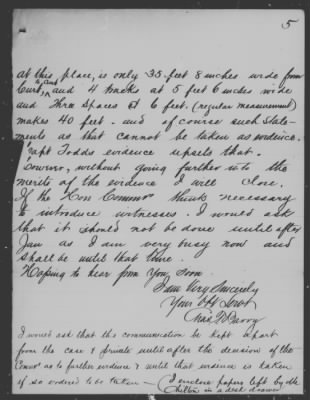 5
at this place, is only 35 feet 8 inches wide from
Curb to Curb, and 4 tracks at 5 feet 6 inches wide
and Three spaces of 6 feet. (regular measurement)
makes 40 feet - and of course such state-
ments as that cannot be taken as evidence.
Capt Todds evidence upsets that.
However, without going further into the
merits of the evidence I will close.
If the Hon Commr think necessary
to introduce witnesses. I would ask
that it should not be done until after
Jan as I am very busy now and
shall be until that time.
Hoping to hear from you soon.
I am Very Sincerely
Your Obt Servt
Chas
I would ask that this communication be kept apart
from the case & private until after the decision of the
Commr as to further evidence & until that evidence is taken
if so ordered to be taken - (I enclose papers left by Mr
Chilton in a desk drawer)